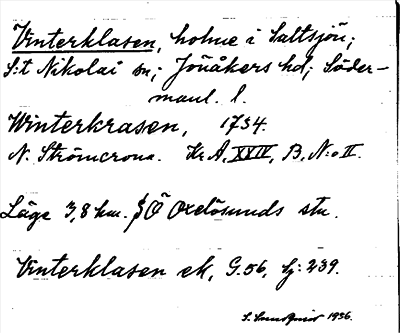 Vinterklasen, holme i Saltsjön;
S:t Nikolai sn; Jönåkers hd; Söder-
manl. l.
Winterkrasen, 1734.
N. Strömcrona. Kr A, XXIV, B, N:o II.
Läge 3,8 km. SÖ Oxelösunds stn.
Vinterklasen ek, G.56, bj: 239.
S. 1936.